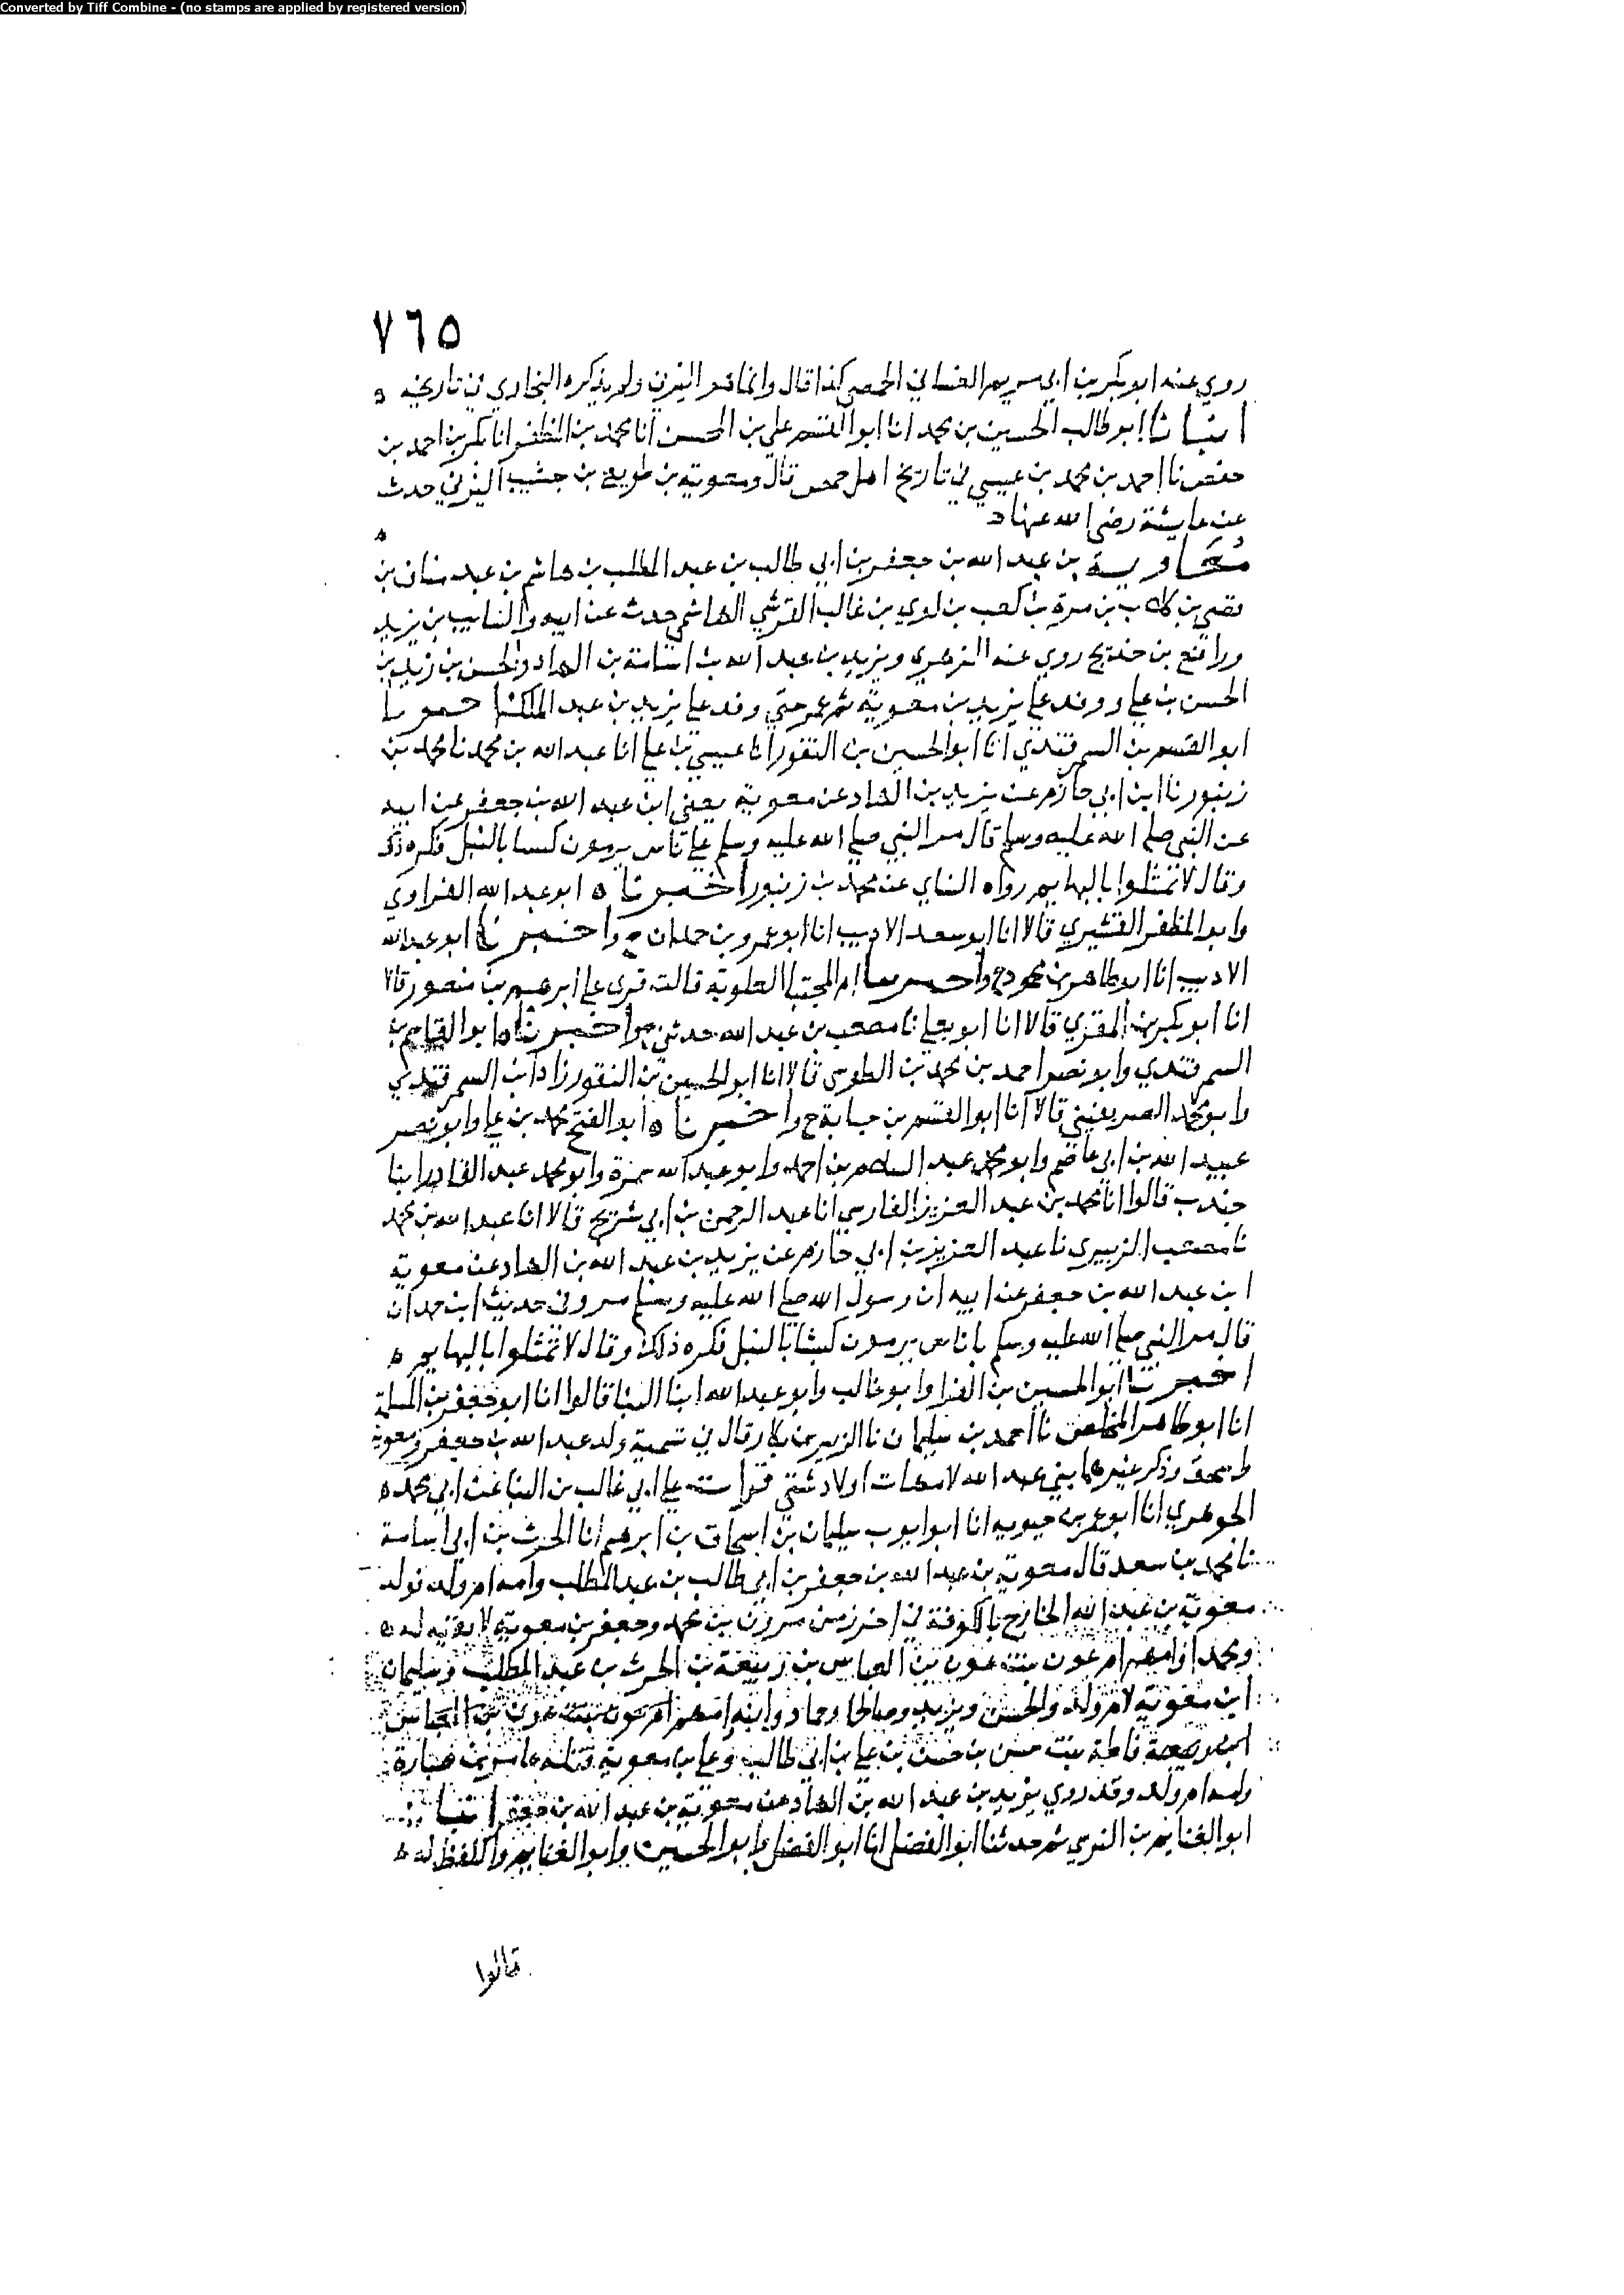 Converted by Tiff Combine - (no stamps are applied by registered version)
٧٦٥
روي عنه ابو بكر بن ابي مريم الغساني الحمصي كذا قال وانما هو اليزني ولم يذكره البخاري في تاريخه
انبانا ابو طالب الحسين بن محمد انا ابو القسم علي بن المحسن انا محمد بن المظفر انا بكر بن احمد بن
حفص نا احمد بن محمد بن عيسى في تاريخ اهل حمص قال ومعوية بن طويع بن جشيب اليزني حدث
عن عايشة رضى الله عنها
معاوية بن عبد الله بن جعفر بن ابي طالب بن عبد المطلب بن هاشم بن عبد مناف بن
قصي بن كلاب بن مرة بن كعب بن لوي بن غالب القرشي الهاشمي حدث عن ابيه والسايب بن يزيد
ورافع بن خديج روي عنه الزهري ويزيد بن عبد الله بن اسامة بن الهاد والحسن بن زيد بن
الحسن بن علي ووفد علي يزيد بن معوية ثم عمر حتي وفد علي يزيد بن عبد الملك اخبرنا
ابو القسم بن السمرقندي انا ابو الحسين بن النقور انا عيسي بن علي انا عبد الله بن محمد نا محمد بن
زنبور نا ابن ابي حازم عن يزيد بن الهاد عن معوية يعني ابن عبد الله بن جعفر عن ابيه
عن النبي صلى الله عليه وسلم قال مر النبي صلى الله عليه وسلم علي ناس يرمون كبسا بالنبل فكره ذلك
وقال لا تمثلوا بالبهايم رواه النساي عن محمد بن زنبور اخبرنا ه ابو عبد الله الفراوي
وابو المظفر القشيري قالا انا ابو سعد الاديب انا ابو عمرو بن حمدان ح واخبرنا ابو عبد الله
الاديب انا ابو طاهر بن محمود ح واخبرتنا ام المجتبا العلوية قالت قرى علي ابرهيم بن منصور قالا
انا ابو بكر بن المقري قالا انا ابو يعلي نا مصعب بن عبد الله حدثني ح واخبرنا ه ابو القاسم بن
السمرقندي وابو نصر احمد بن محمد بن الطوسى قالا انا ابو الحسين بن النقور زاد ابن السمرقندي
وابو محمد الصريفيني قالا انا ابو القسم بن حبابة ح واخبرنا ه ابو الفتح محمد بن علي وابو نصر
عبيد الله بن ابي عاصم وابو محمد عبد السلام بن احمد وابو عبد الله سمرة وابو محمد عبد القادر ابنا
جندب قالوا انا محمد بن عبد العزيز الفارسي انا عبد الرحمن بن ابي شريح قالا انا عبد الله بن محمد
نا مصعب الزبيري نا عبد العزيز بن ابي حازم عن يزيد بن عبد الله بن الهاد عن معوية
ابن عبد الله بن جعفر عن ابيه ان رسول الله صلي الله عليه وسلم مر وفي حديث ابن حمدان
قال مر النبي صلي الله عليه وسلم باناس يرمون كبشا بالنبل فكره ذلك وقال لا تمثلوا بالبهايم ه
اخبرنا ابو الحسين بن الفرا وابو غالب وابو عبد الله ابنا البنا قالوا انا ابو جعفر بن المسلمة
انا ابو طاهر المخلص نا احمد بن سليمان نا الزبير بن بكار قال في تسمية ولد عبد الله بن جعفر ومعوية
واسحق وذكر غيرهما بني عبد الله لامهات اولاد شتي قرات علي ابي غالب بن البنا عن ابي محمد ه
الجوهري انا ابو عمر بن حيويه انا ابو ايوب سليمان بن اسحاق بن ابرهيم انا الحرث بن ابي اسامة
نا محمد بن سعد قال معوية بن عبد الله بن جعفر بن ابي طالب بن عبد المطلب وامه ام ولد فولد
معوية بن عبد الله الخارج بالكوفة في اخر زمن مروان بن محمد وجعفر بن معوية لا بقية له ه
ومحمدا وامهم ام عون بنت عون بن العباس بن ربيعة بن الحرث بن عبد المطلب وسليمان
ابن معوية لام ولد والحسن ويزيد وصالحا وحماد وابنه امهم ام عون بنت عون بن العباس
ابن ربيعة فاطمة بنت حسن بن حسن بن علي بن ابي طالب وعلي بن معوية قتله عامر بن ضبارة
وامه ام ولد وقد روي يزيد بن عبد الله بن الهاد عن معوية بن عبد الله بن جعفر انبانا
ابو الغنايم بن النرسي ثم حدثنا ابو الفضل انا ابو الفضل وابو الحسين وابو الغنايم واللفظ له ه
قالوا